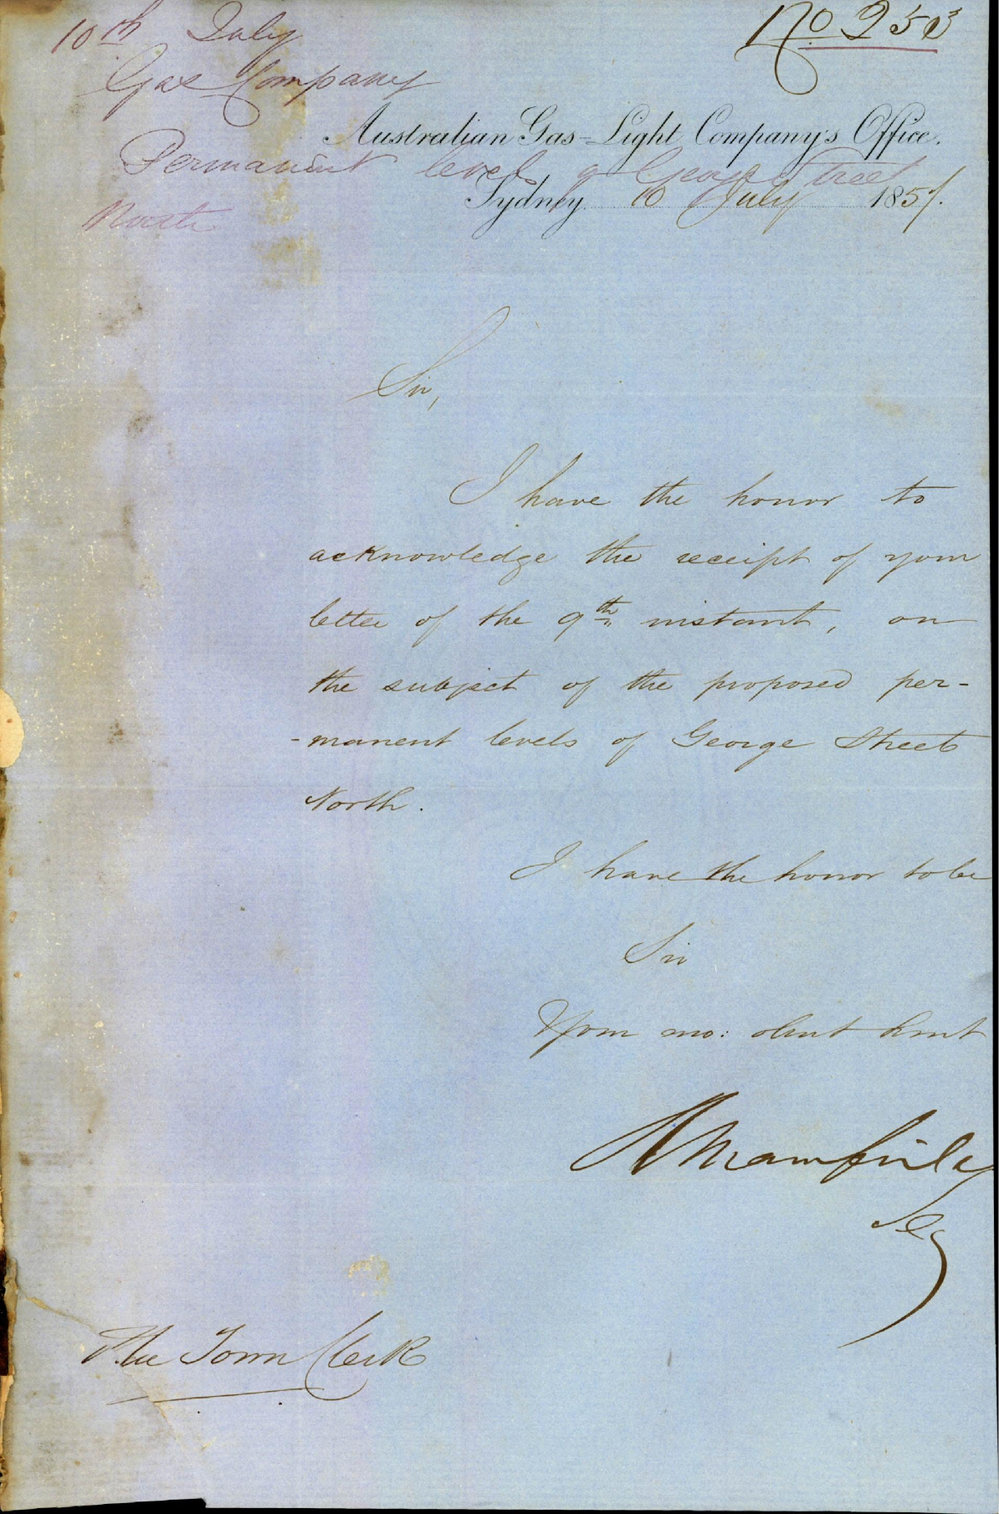 10th July
No 253
Gas Company
Australian Gas-Light Company's Office.
Permanent levels of George Street
Sydney 10 July 1857.
North
Sir,
I have the honor to
acknowledge the receipt of your
letter of the 9th instant, on
the subject of the proposed per-
-manent levels of George Street
North.
I have the honor to be
Sir
Your mo: obent Servt
Secy
The Town Clerk